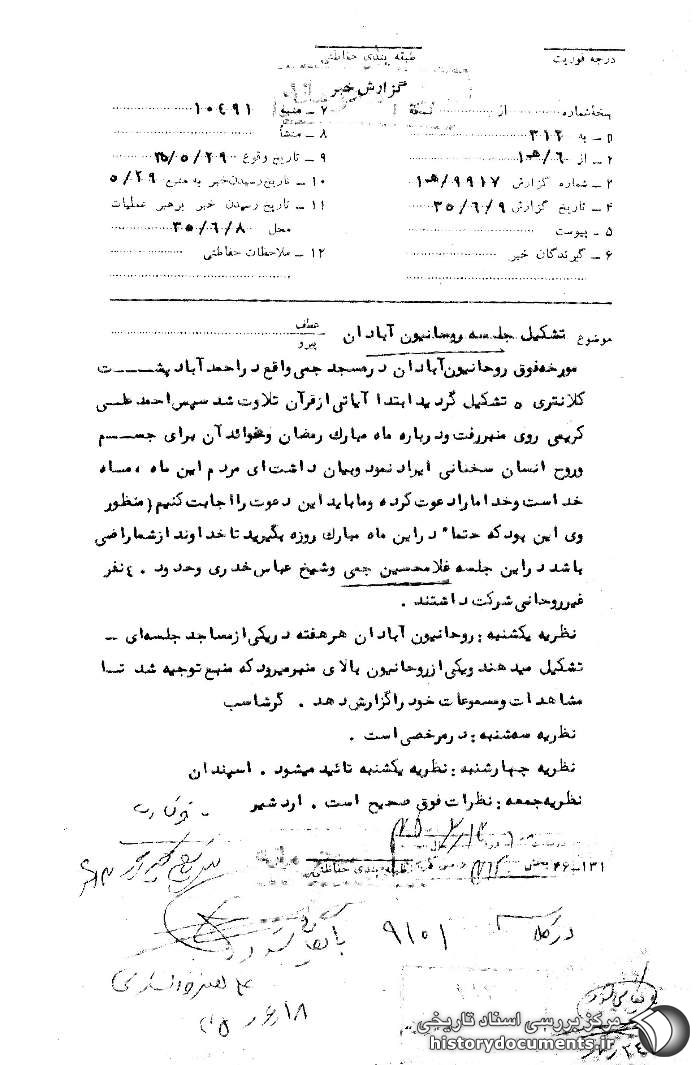 درجه فوریت
طبقه بندی حفاظتی
گزارش خبر
نسخه شماره از نسخه
۱ـ به ۳۱۲
۲ـ از ۶/ه‍۱
۳ـ شماره گزارش ۹۹۱۷/ه‍۱
۴ـ تاریخ گزارش ۳۵/۶/۹
۵ـ پیوست
۶ـ گیرندگان خبر
۷ـ منبع ۱۰۴۹۱
۸ـ منشأ
۹ـ تاریخ وقوع ۳۵/۵/۲۹
۱۰ـ تاریخ رسیدن خبر به منبع ۵/۲۹
۱۱ـ تاریخ رسیدن خبر برهبر عملیات
محل ۳۵/۶/۸
۱۲ـ ملاحظات حفاظتی
موضوع تشکیل جلسه روحانیون آبادان
عطف
پیرو
مورخه فوق روحانیون آبادان در مسجد جمی واقع در احمد آباد پشت
کلانتری ۵ تشکیل گردید ابتدا آیاتی از قرآن تلاوت شد سپس احمد علمی
کریمی روی منبر رفت و درباره ماه مبارك رمضان و فوائد آن برای جسم
و روح انسان سخنانی ایراد نمود و بیان داشت ای مردم این ماه ، ماه
خداست و خدا ما را دعوت کرده و ما باید این دعوت را اجابت کنیم (منظور
وی این بود که حتماً در این ماه مبارك روزه بگیرید تا خداوند از شما راضی
باشد در این جلسه غلامحسین جمی و شیخ عباس خدری و حدود ۴۰ نفر
غیر روحانی شرکت داشتند .
نظریه یکشنبه : روحانیون آبادان هر هفته در یکی از مساجد جلسه‌ای ـ
تشکیل میدهند و یکی از روحانیون بالای منبر میرود که منبع توجیه شد تا
مشاهدات و مسموعات خود را گزارش دهد . گرشاسب
نظریه سه‌شنبه : در مرخصی است .
نظریه چهارشنبه : نظریه یکشنبه تائید میشود . اسپندان
نظریه جمعه : نظرات فوق صحیح است . اردشیر
طبقه بندی حفاظتی
۹/۵/۱
۱۸
مرکز بررسی اسناد تاریخی
historydocuments.ir